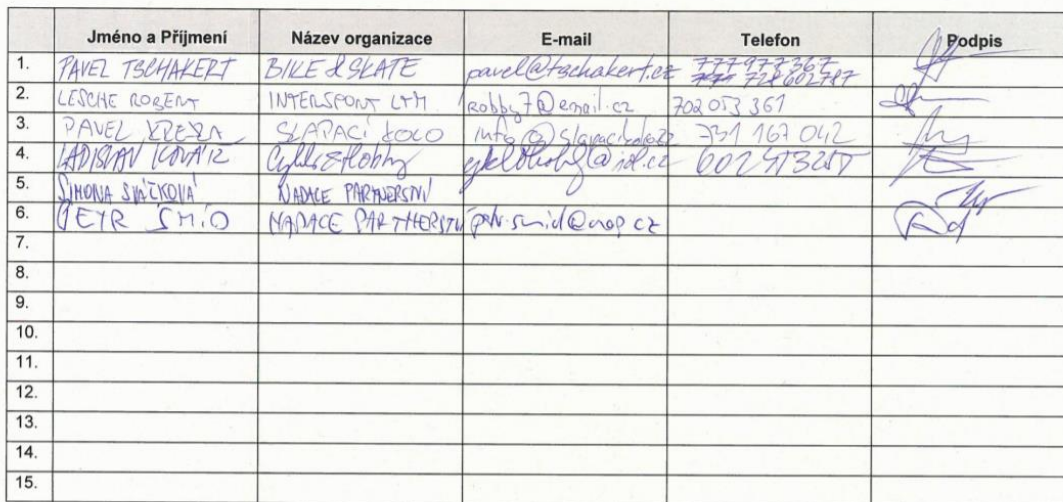 Jméno a Příjmení Název organizace E-mail Telefon Podpis
1. PAVEL TSCHAKERT BIKE & SKATE pavel@tschakert.cz 777977367
728602787
2. LESCHE ROBERT INTERSPORT LTM robby7@email.cz 702053361
3. PAVEL SLAPACÍ KOLO 731 167 042
4. LADISLAV Cyklo&Hobby
5. SIMONA SVÁČKOVÁ NADACE PARTNERSTVÍ
6. PETR ŠMÍD NADACE PARTNERSTVÍ petr.smid@nap.cz
7.
8.
9.
10.
11.
12.
13.
14.
15.